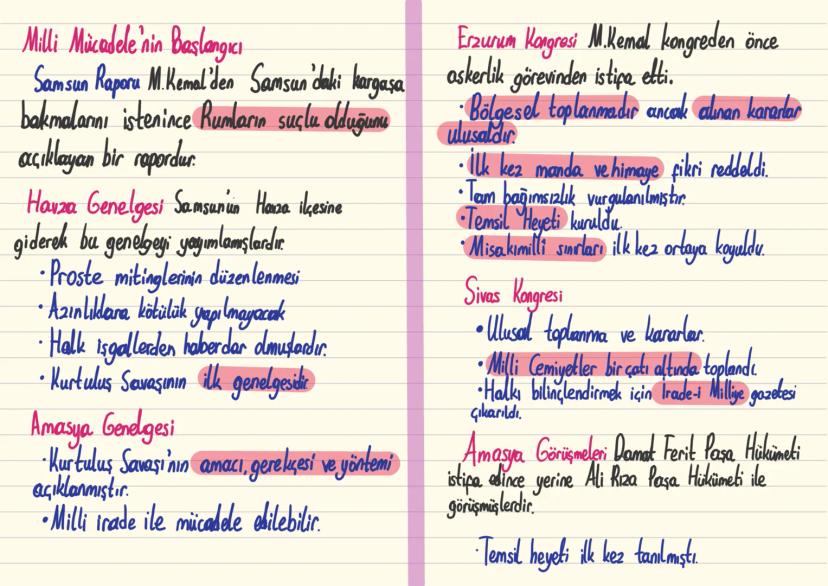 Milli Mücadele'nin Başlangıcı
Samsun Raporu M.Kemal'den Samsun'daki kargaşa
bakmalarını istenince Rumların suçlu olduğunu
açıklayan bir rapordur.
Havza Genelgesi Samsun'un Havza ilçesine
giderek bu genelgeyi yayımlamışlardır.
• Proste mitinglerinin düzenlenmesi
• Azınlıklara kötülük yapılmayacak
• Halk işgallerden haberdar olmuşlardır.
• Kurtuluş Savaşının ilk genelgesidir
Amasya Genelgesi
• Kurtuluş Savaşı'nın amacı, gerekçesi ve yöntemi
açıklanmıştır.
• Milli irade ile mücadele edilebilir.
Erzurum Kongresi M.Kemal kongreden önce
askerlik görevinden istifa etti.
• Bölgesel toplanmadır ancak alınan kararlar
ulusaldır.
• İlk kez manda ve himaye fikri reddedldi.
• Tam bağımsızlık vurgulanılmıştır.
• Temsil Heyeti kuruldu.
• Misakımilli sınırları ilk kez ortaya koyuldu.
Sivas Kongresi
• Ulusal toplanma ve kararlar.
• Milli Cemiyetler bir çatı altında toplandı.
• Halkı bilinçlendirmek için İrade-i Milliye gazetesi
çıkarıldı.
Amasya Görüşmeleri Damat Ferit Paşa Hükümeti
istifa edince yerine Ali Rıza Paşa Hükümeti ile
görüşmüşlerdir.
• Temsil heyeti ilk kez tanılmıştı.